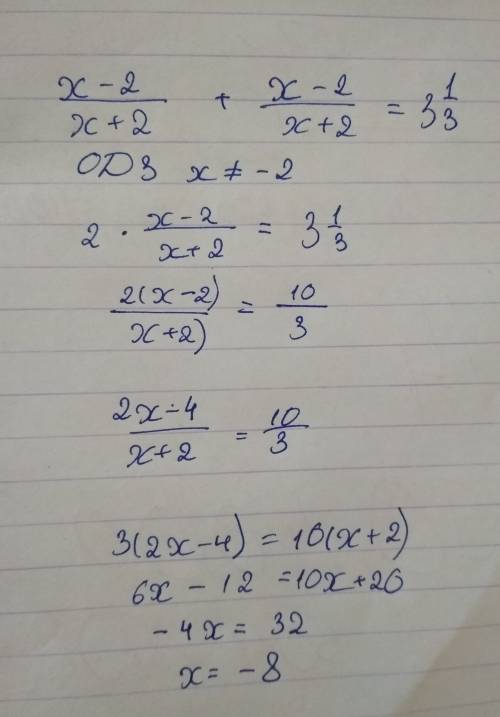 x-2/x+2 + x-2/x+2 = 3 1/3
ODЗ x ≠ -2
2 · x-2/x+2 = 3 1/3
2(x-2)/x+2) = 10/3
2x-4/x+2 = 10/3
3(2x-4) = 10(x+2)
6x - 12 = 10x+20
-4x = 32
x = -8